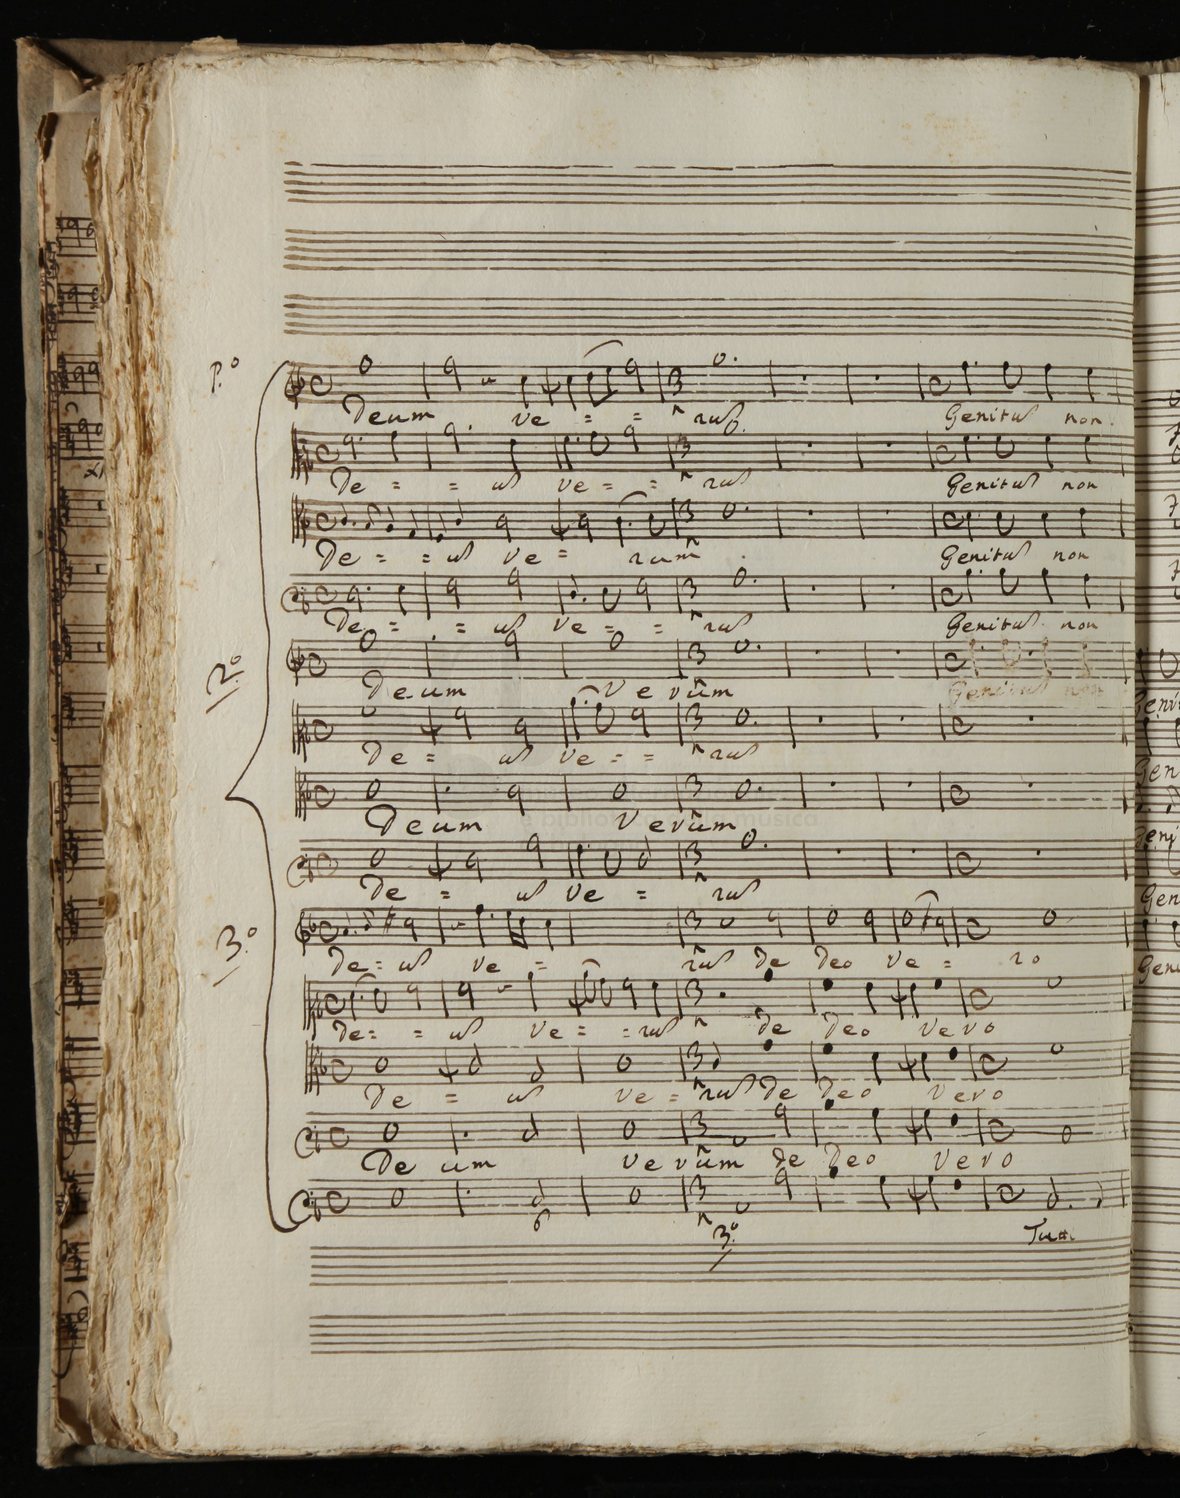 P.º
Deum ve = = rus Genitus non
De = = us ve = = rus Genitus non
De = = us Ve = rum Genitus non
De = = us ve = = rus Genitus non
2º
Deum Verum Genitus non
De = us ve = = rus
Deum Verum
e biblioteca della musica
De = us Ve = rus
3.º
De = us ve = rus de Deo ve = ro
De = = us Ve = = rus de Deo Vero
De = us ve = rus de Deo Vero
De um verum de Deo Vero
6
3º
Tutti